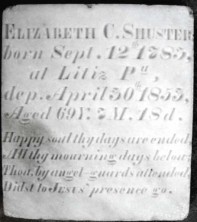 ELIZABETH C. SHUSTER
born Sept. 12th 1785,
at Litiz Pa,
dep. April 30 1855,
Aged 69Y. 7M. 18d.
Happy soul thy days are ended,
All thy mourning days below:
Thou, by angel-guards attended,
Didst to JESUS' presence go.